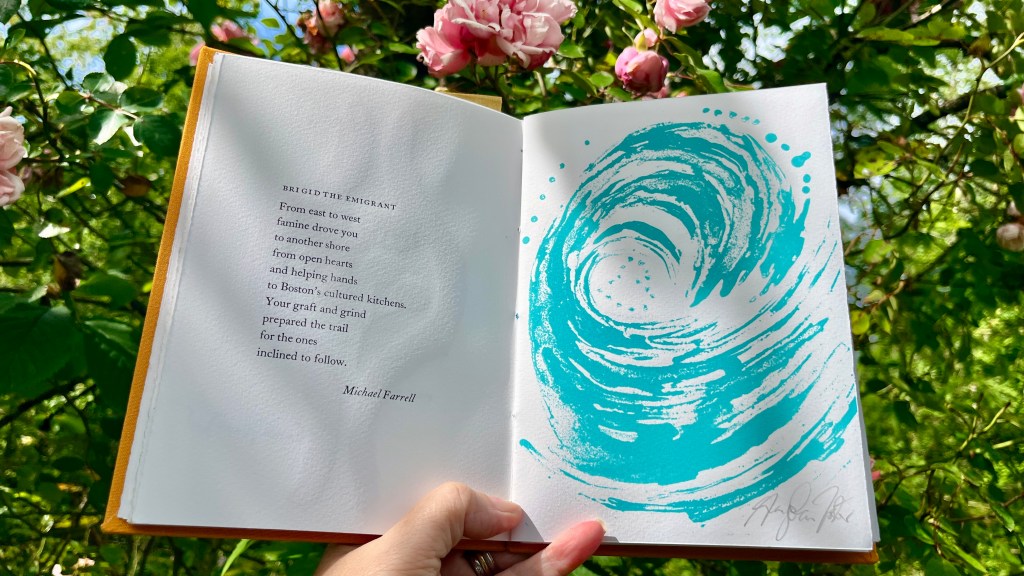 BRIGID THE EMIGRANT
From east to west
famine drove you
to another shore
from open hearts
and helping hands
to Boston's cultured kitchens.
Your graft and grind
prepared the trail
for the ones
inclined to follow.
Michael Farrell